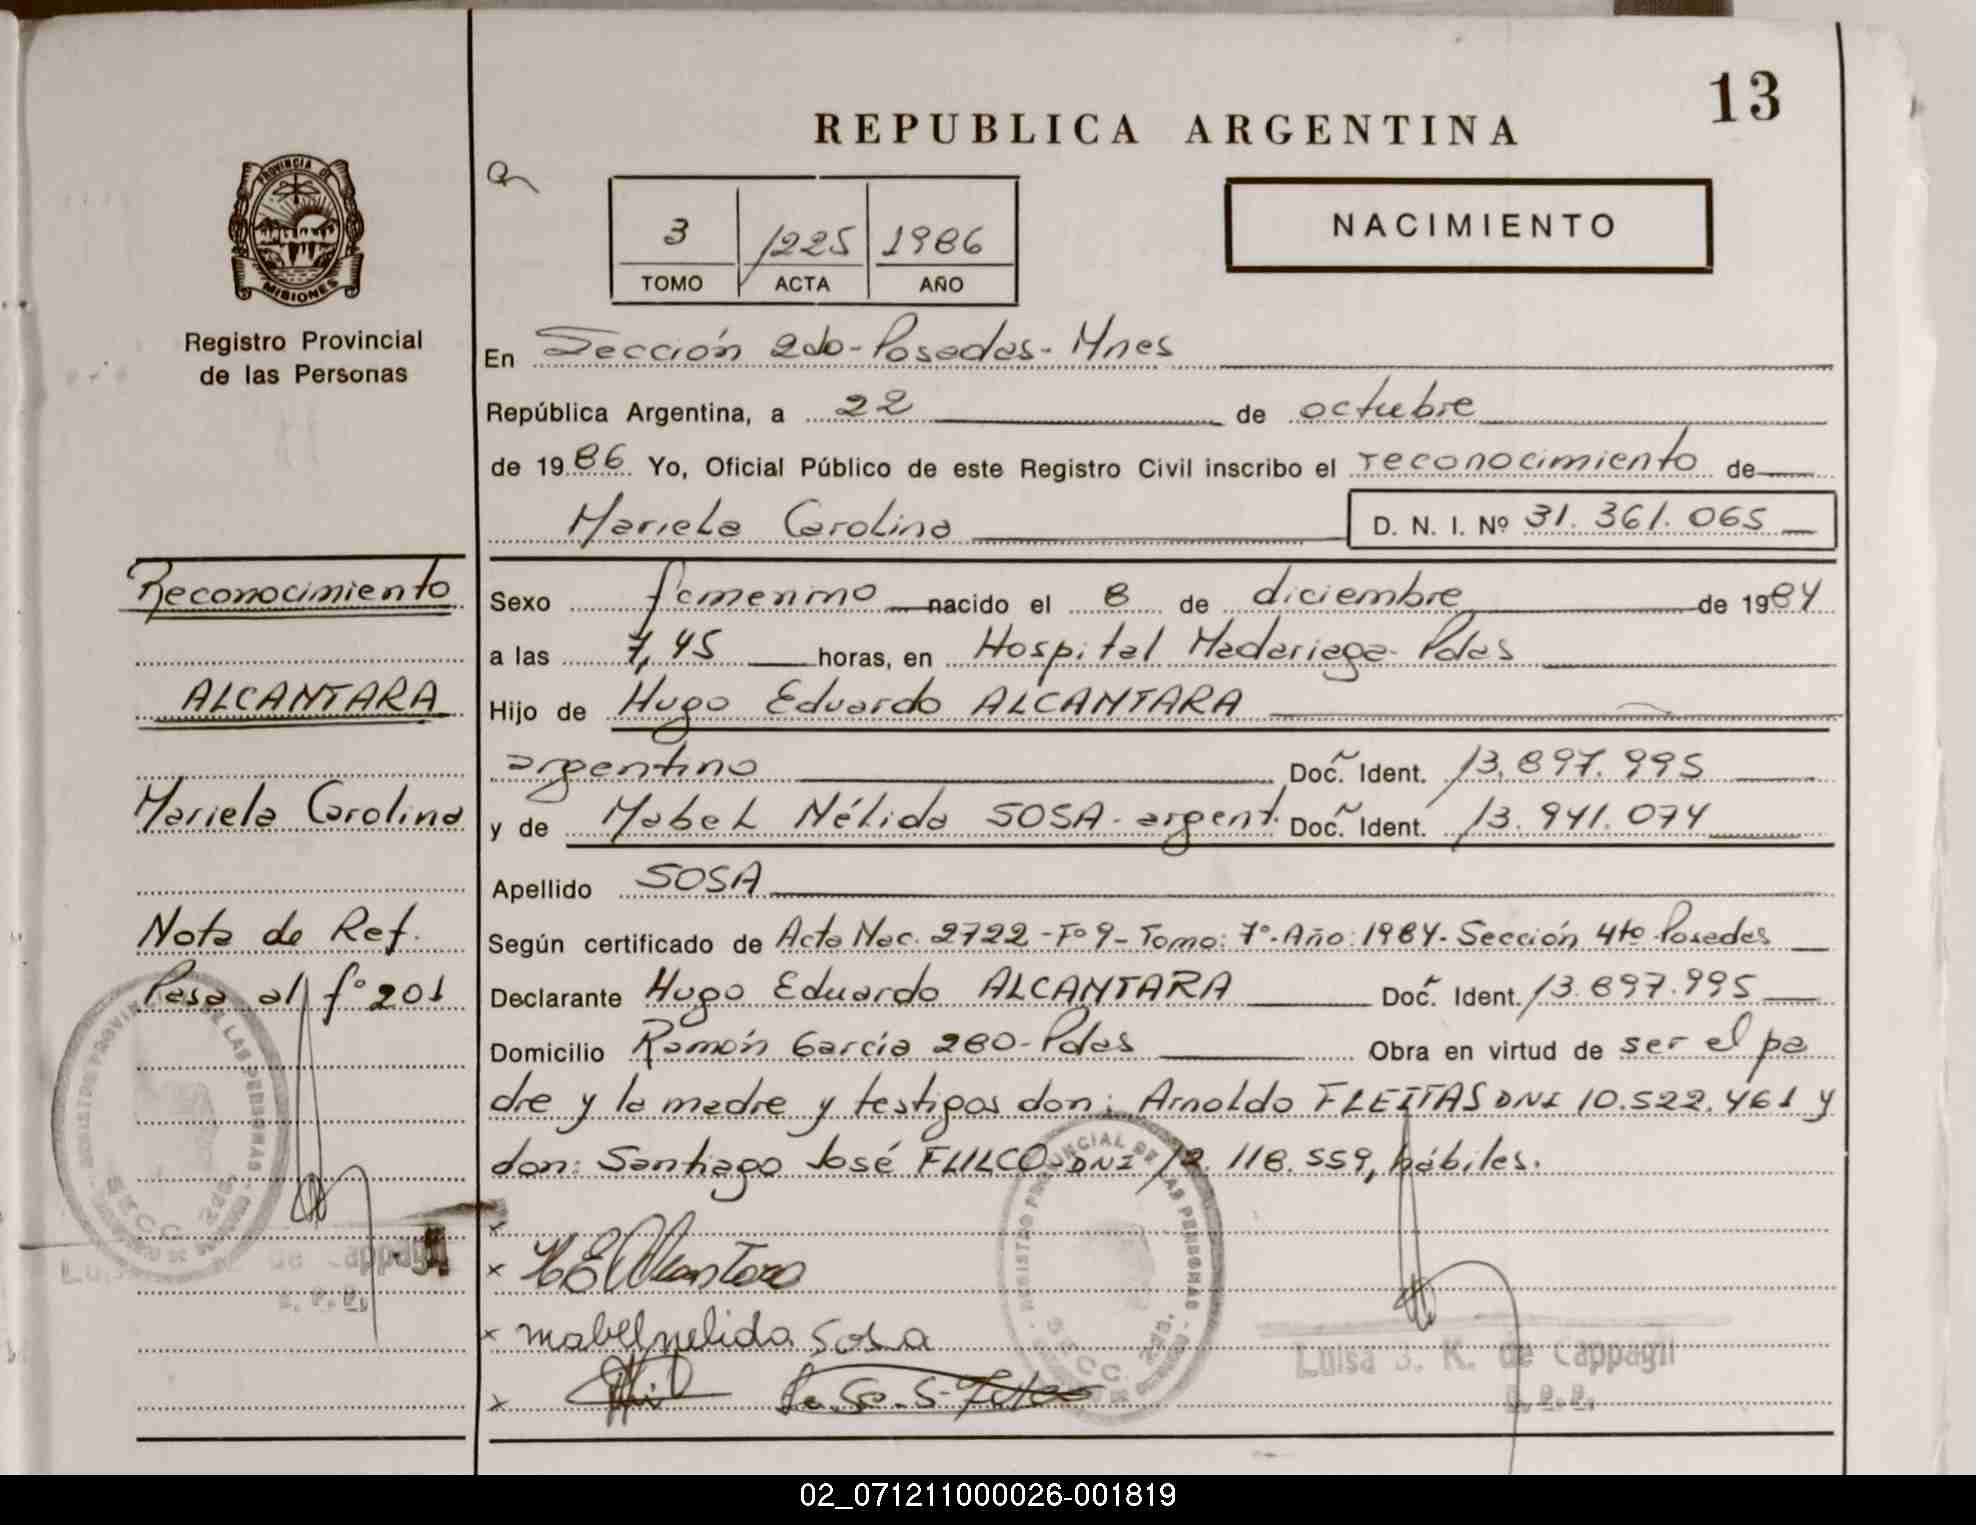 13
REPUBLICA ARGENTINA
PROVINCIA DE
MISIONES
Registro Provincial
de las Personas
3 1225 1986
TOMO ACTA AÑO
NACIMIENTO
En Sección 2do-Posadas-Mnes
República Argentina, a 22 de octubre
de 1986 Yo, Oficial Público de este Registro Civil inscribo el reconocimiento de
Mariela Carolina D. N. I. Nº 31.361.065
Reconocimiento
ALCANTARA
Mariela Carolina
Nota de Ref.
Pasa al fº 201
Sexo femenino nacido el 8 de diciembre de 1984
a las 7,45 horas, en Hospital Madariaga-Pdas
Hijo de Hugo Eduardo ALCANTARA
argentino Doc. Ident. 13.897.995
y de Mabel Nélida SOSA-argent. Doc. Ident. 13.941.074
Apellido SOSA
Según certificado de Acta Nac. 2722-Fº 9-Tomo: 7º-Año: 1984-Sección 4to Posadas
Declarante Hugo Eduardo ALCANTARA Doc. Ident. 13.897.995
Domicilio Ramón García 280-Pdas Obra en virtud de ser el pa
dre y la madre y testigos don: Arnoldo FLEITAS DNI 10.522.461 y
don: Santiago José DNI 12.118.559, hábiles.
x
x H E Alcantara
x mabel nelida sosa
x
REGISTRO PROVINCIAL DE LAS PERSONAS
SECC. 2da.
de Cappagli
O.P.P.
REGISTRO PROVINCIAL DE LAS PERSONAS
SECC. 2da.
Luisa S. K. de Cappagli
O.P.P.
02_071211000026-001819